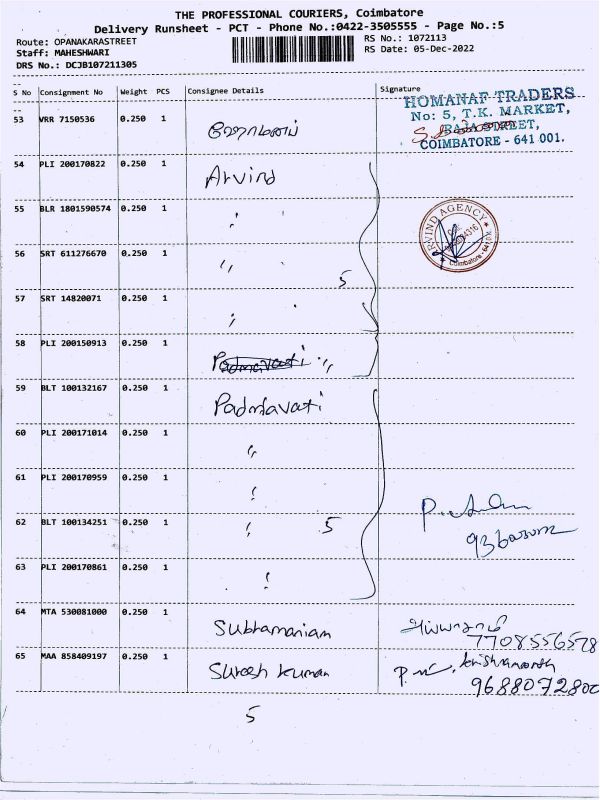 THE PROFESSIONAL COURIERS, Coimbatore
Delivery Runsheet - PCT - Phone No.:0422-3505555 - Page No.:5
Route: OPANAKARASTREET RS No.: 1072113
Staff: MAHESHWARI RS Date: 05-Dec-2022
DRS No.: DCJB107211305
S No Consignment No Weight PCS Consignee Details Signature
HOMANAF TRADERS
No: 5, T.K. MARKET,
RAJA STREET,
COIMBATORE - 641 001.
53 VRR 7150536 0.250 1
54 PLI 200170822 0.250 1 Arvind
55 BLR 1801590574 0.250 1 "
ARVIND AGENCY
Coimbatore
56 SRT 611276670 0.250 1 "
5
57 SRT 14820071 0.250 1 "
58 PLI 200150913 0.250 1 Padmavati "
59 BLT 100132167 0.250 1 Padmavati
60 PLI 200171014 0.250 1 "
61 PLI 200170959 0.250 1 "
62 BLT 100134251 0.250 1 " 5
63 PLI 200170861 0.250 1 "
64 MTA 530081000 0.250 1 Subramaniam
7708556578
65 MAA 858409197 0.250 1 Suresh kumar krishnamoorth
9688072800
5